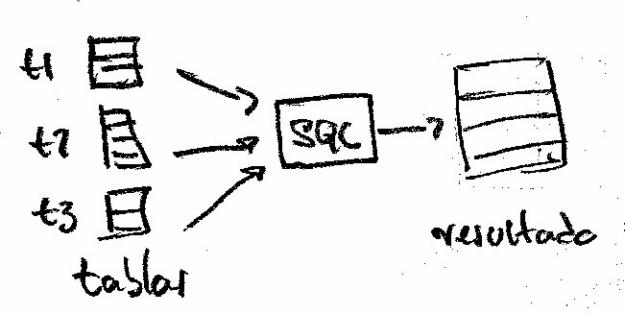 t1
t2
t3
tablas
SQL
resultado